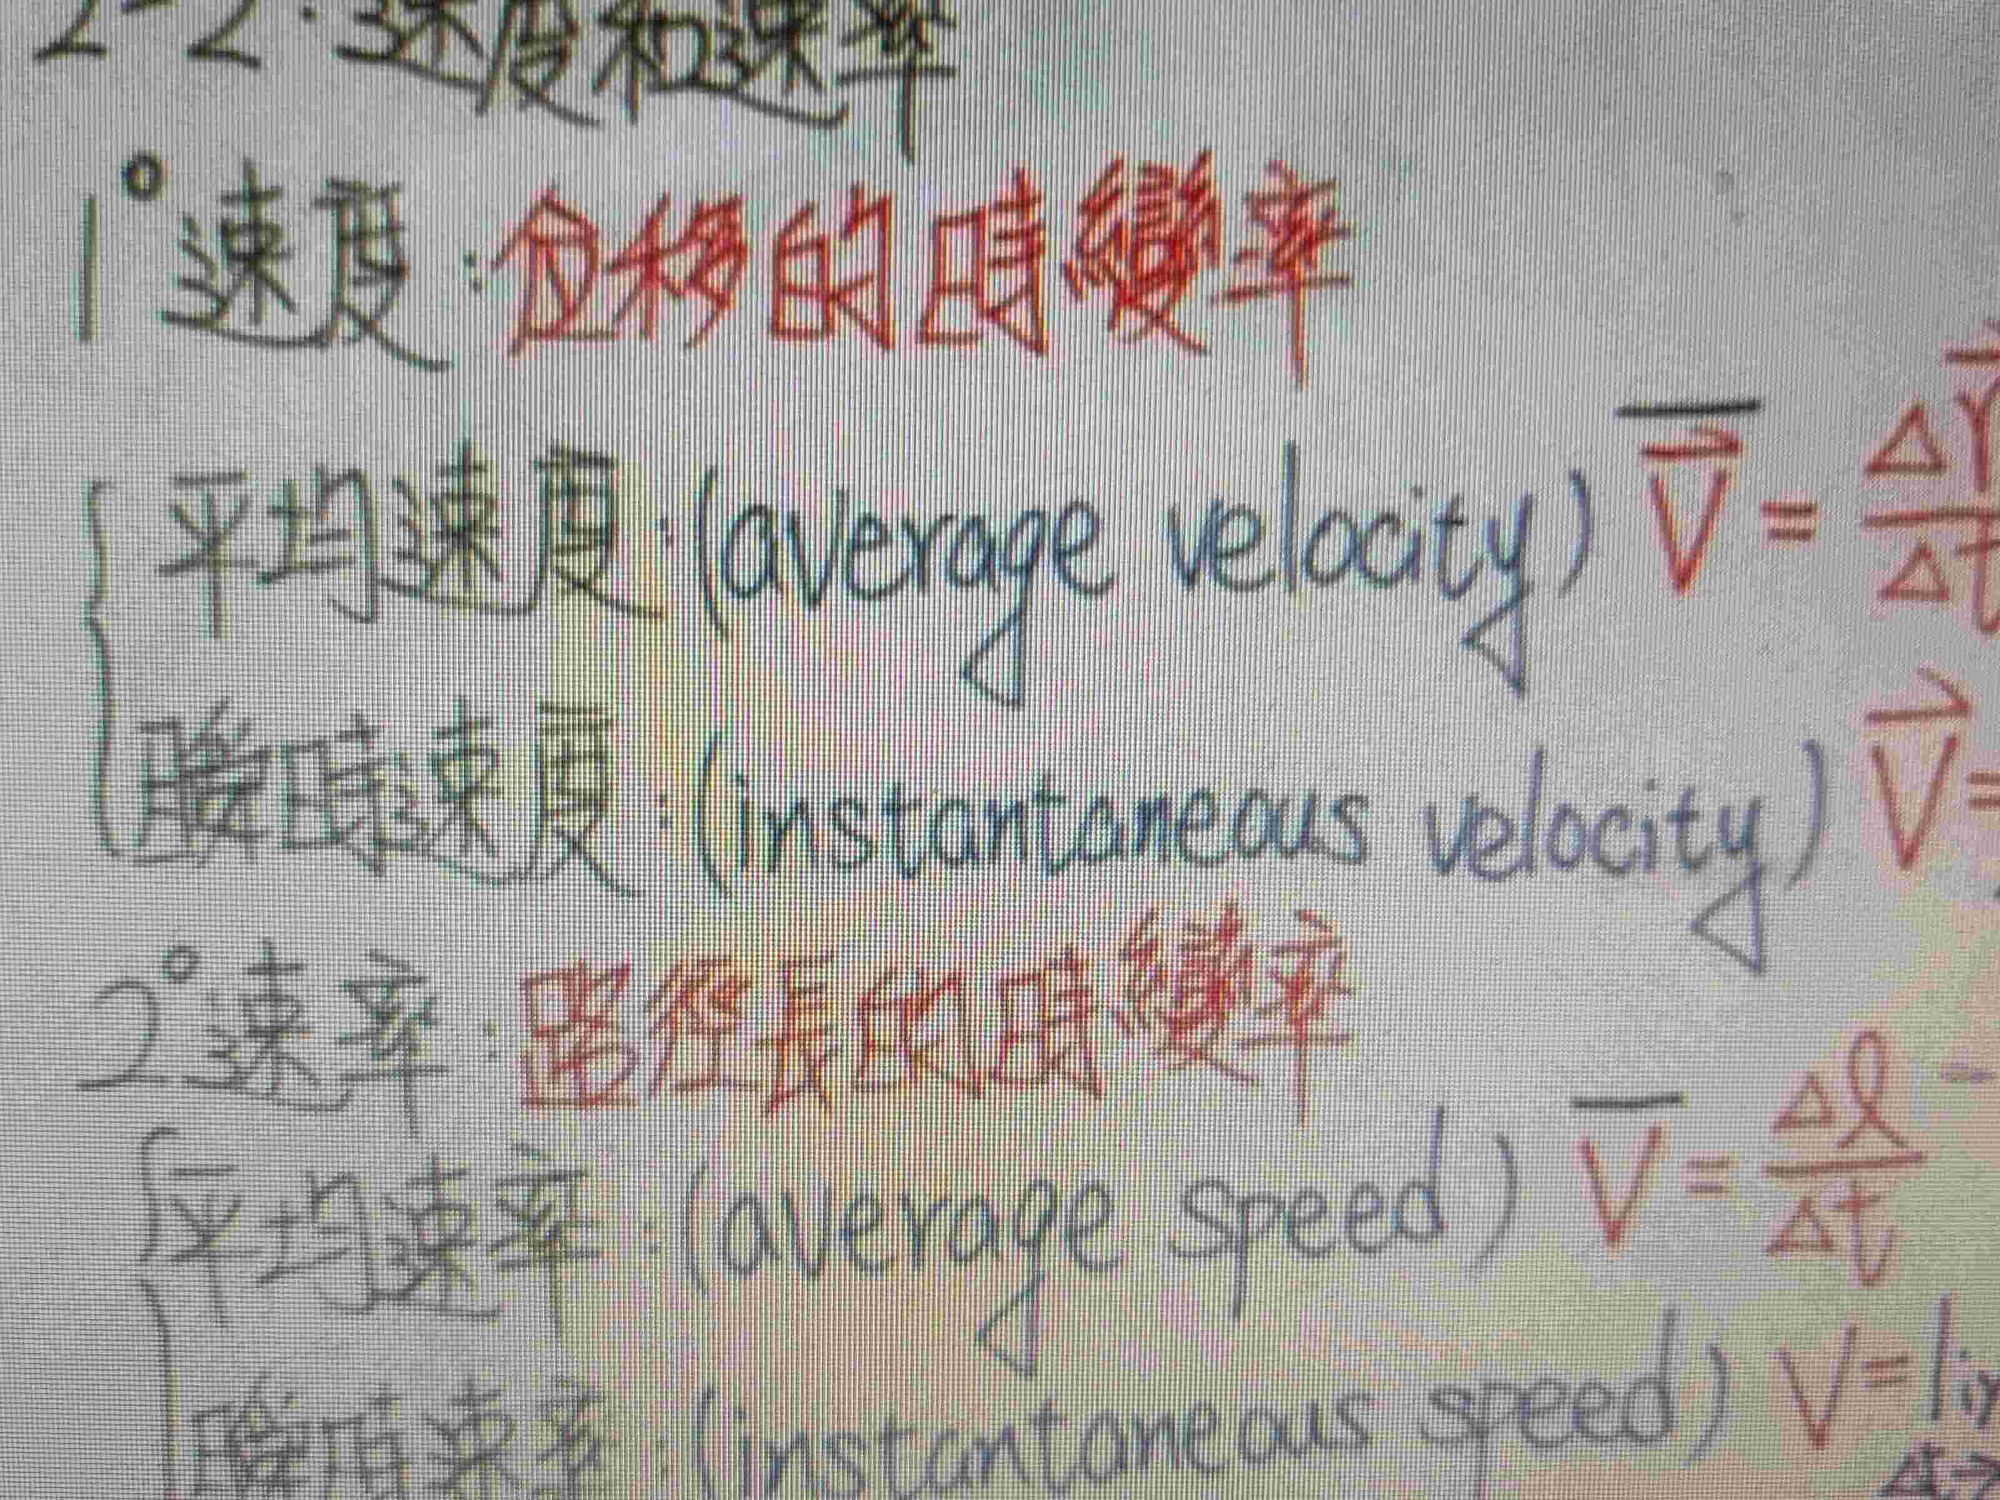 2-2. 速度和速率
1° 速度:位移的時變率
平均速度:(average velocity) V⃗ = Δr⃗ / Δt
瞬時速度:(instantaneous velocity) V⃗ =
2° 速率:路徑長的時變率
平均速率:(average speed) V̅ = Δℓ / Δt
瞬時速率:(instantaneous speed) V = lim